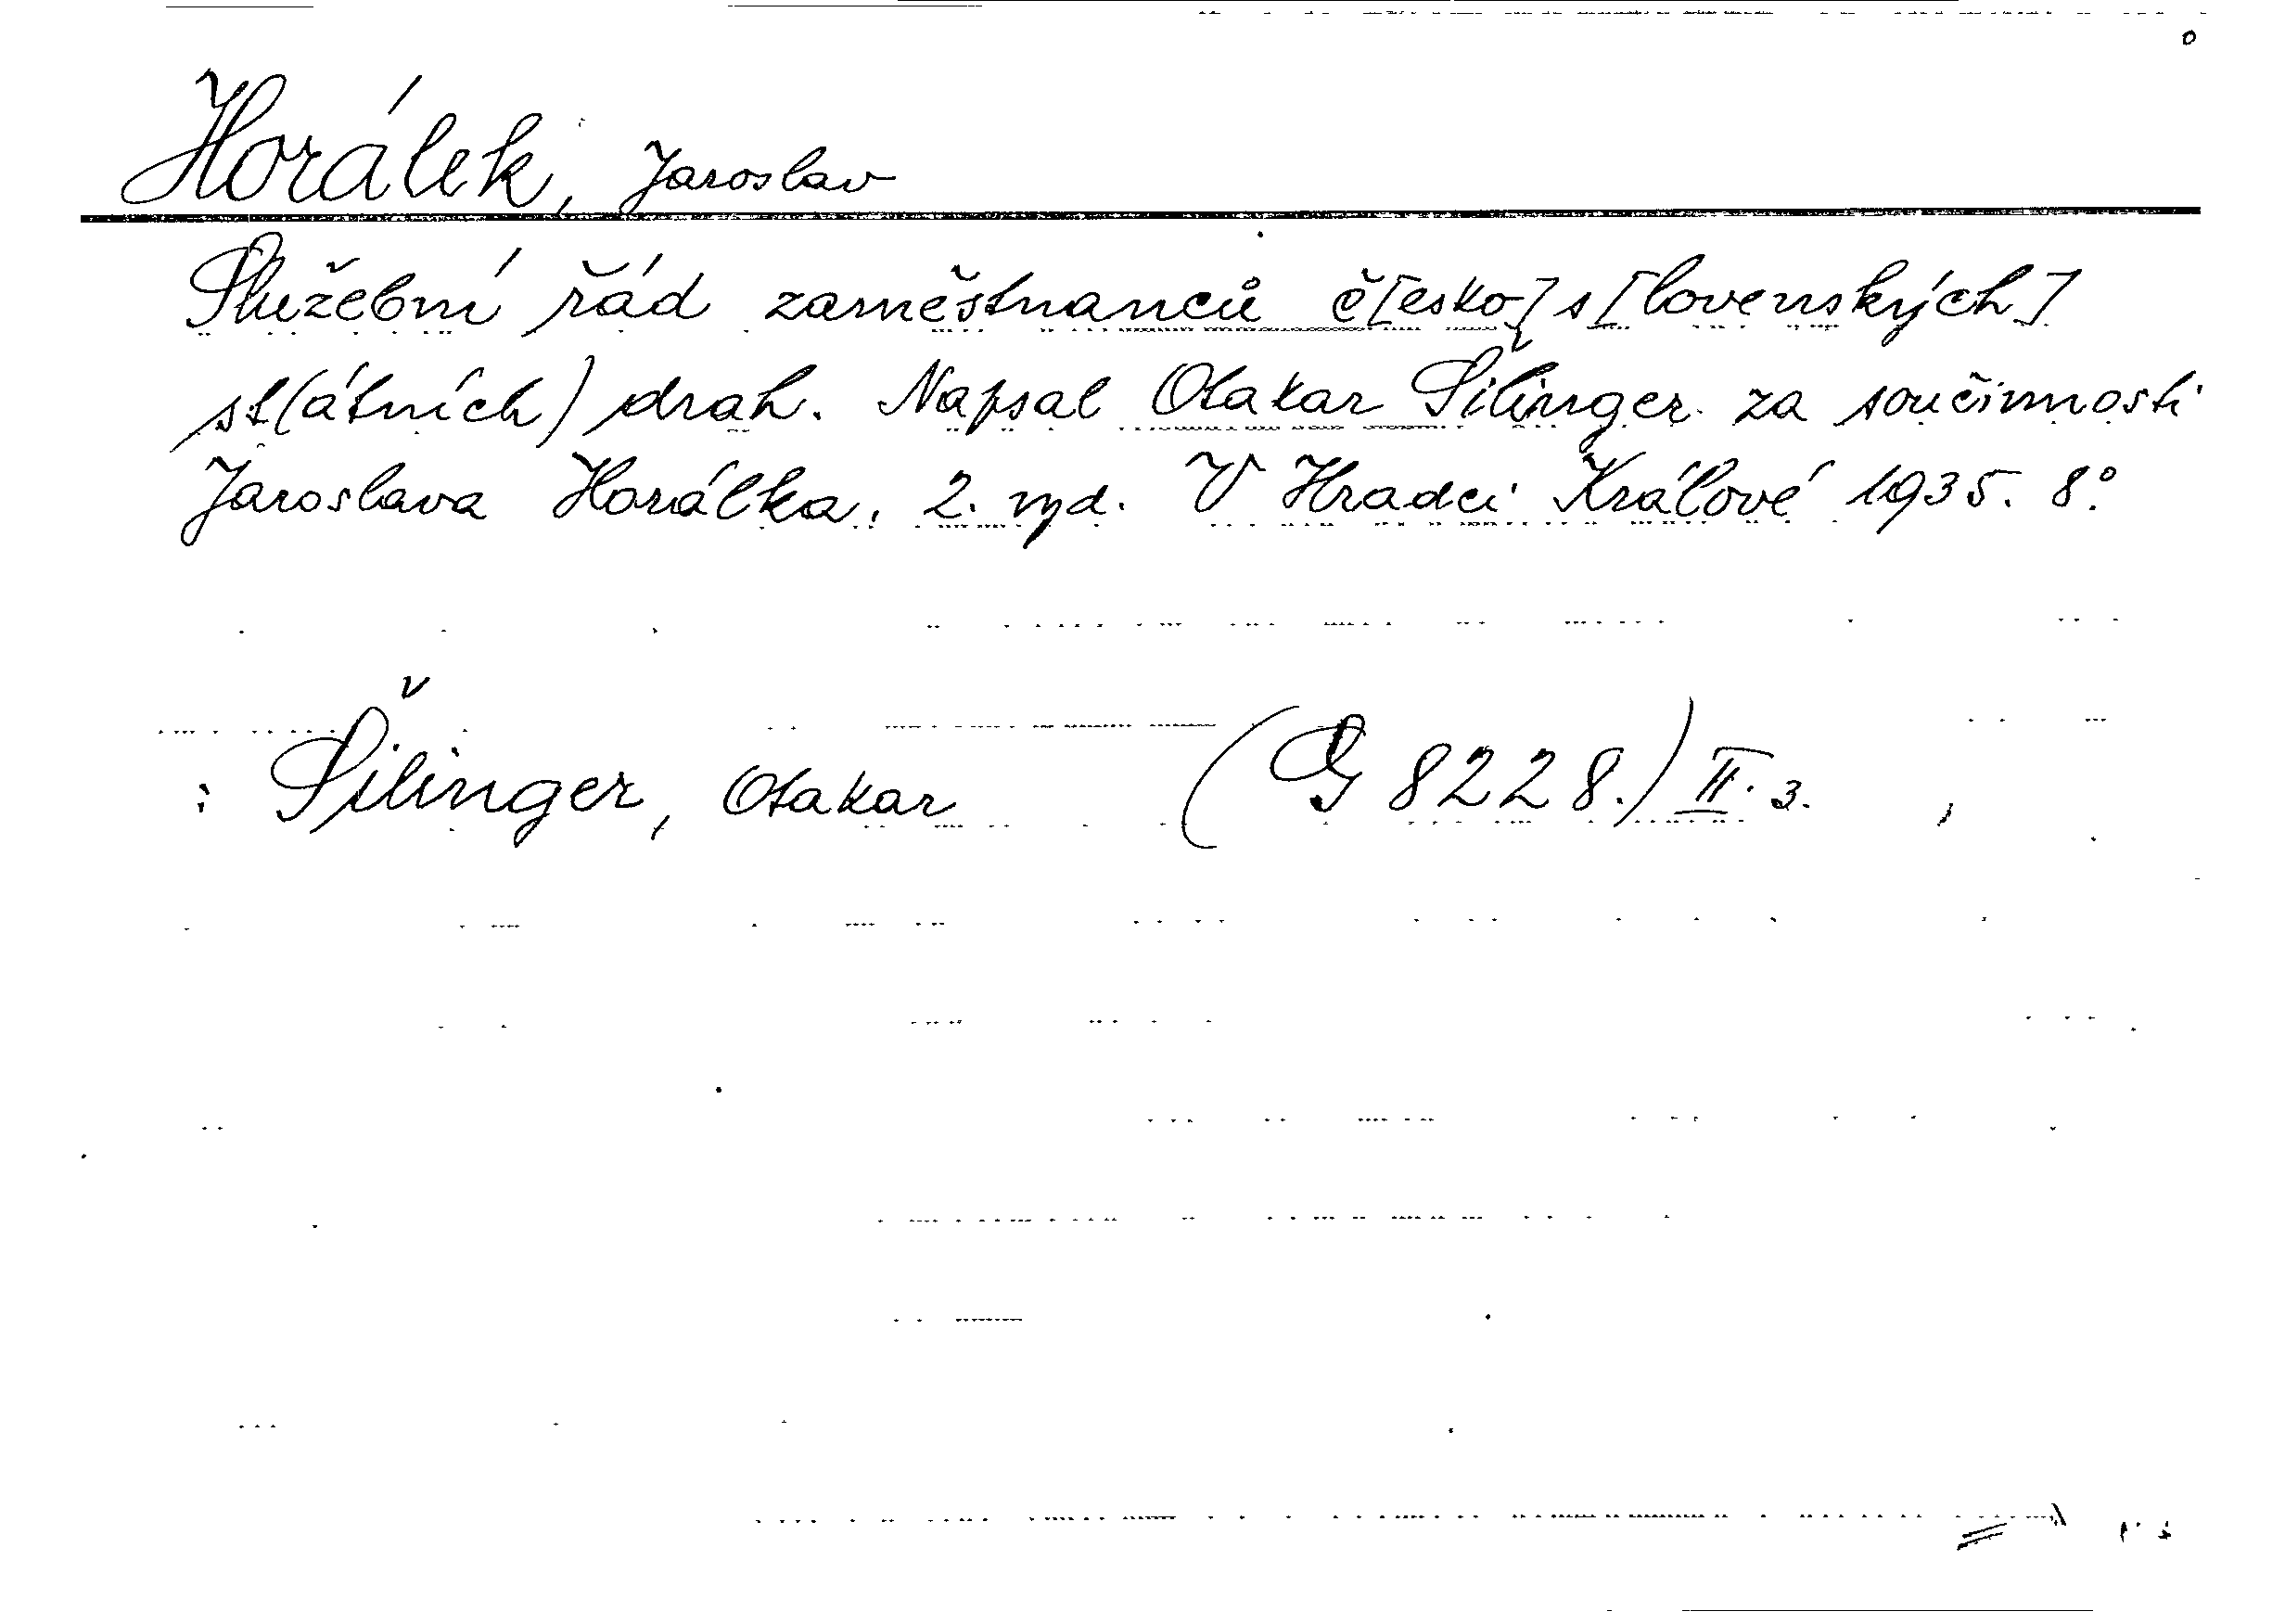 Horálek, Jaroslav
Služební řád zaměstnanců č[esko]s[lovenských]
st(átních) drah. Napsal Otakar Šilinger za součinnosti
Jaroslava Horálka. 2. vyd. V Hradci Králové 1935. 8°.
: Šilinger, Otakar (G 8228.) II. 3.